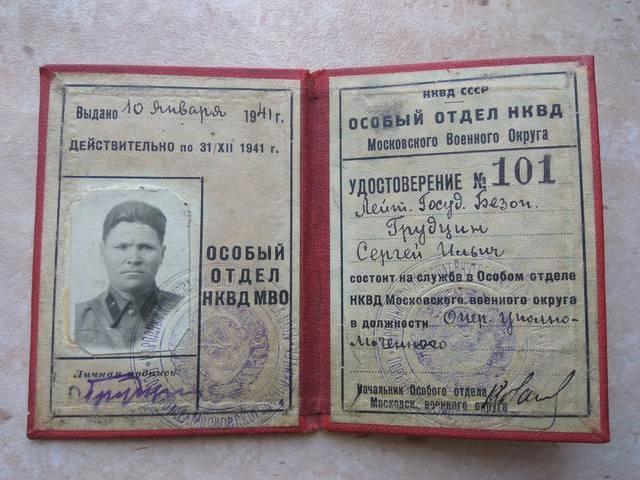 Выдано 10 Января 1941 г.
ДЕЙСТВИТЕЛЬНО по 31/XII 1941 г.
ОСОБЫЙ
ОТДЕЛ
НКВД МВО
Личная подпись
НКВД СССР
ОСОБЫЙ ОТДЕЛ НКВД
Московского Военного Округа
УДОСТОВЕРЕНИЕ № 101
Лейт. Госуд. Безоп.
Грудцин
Сергей Ильич
состоит на службе в Особом отделе
НКВД Московского военного округа
в должности Опер. Уполно-
моченного
Начальник Особого отдела
Московск. военного округа